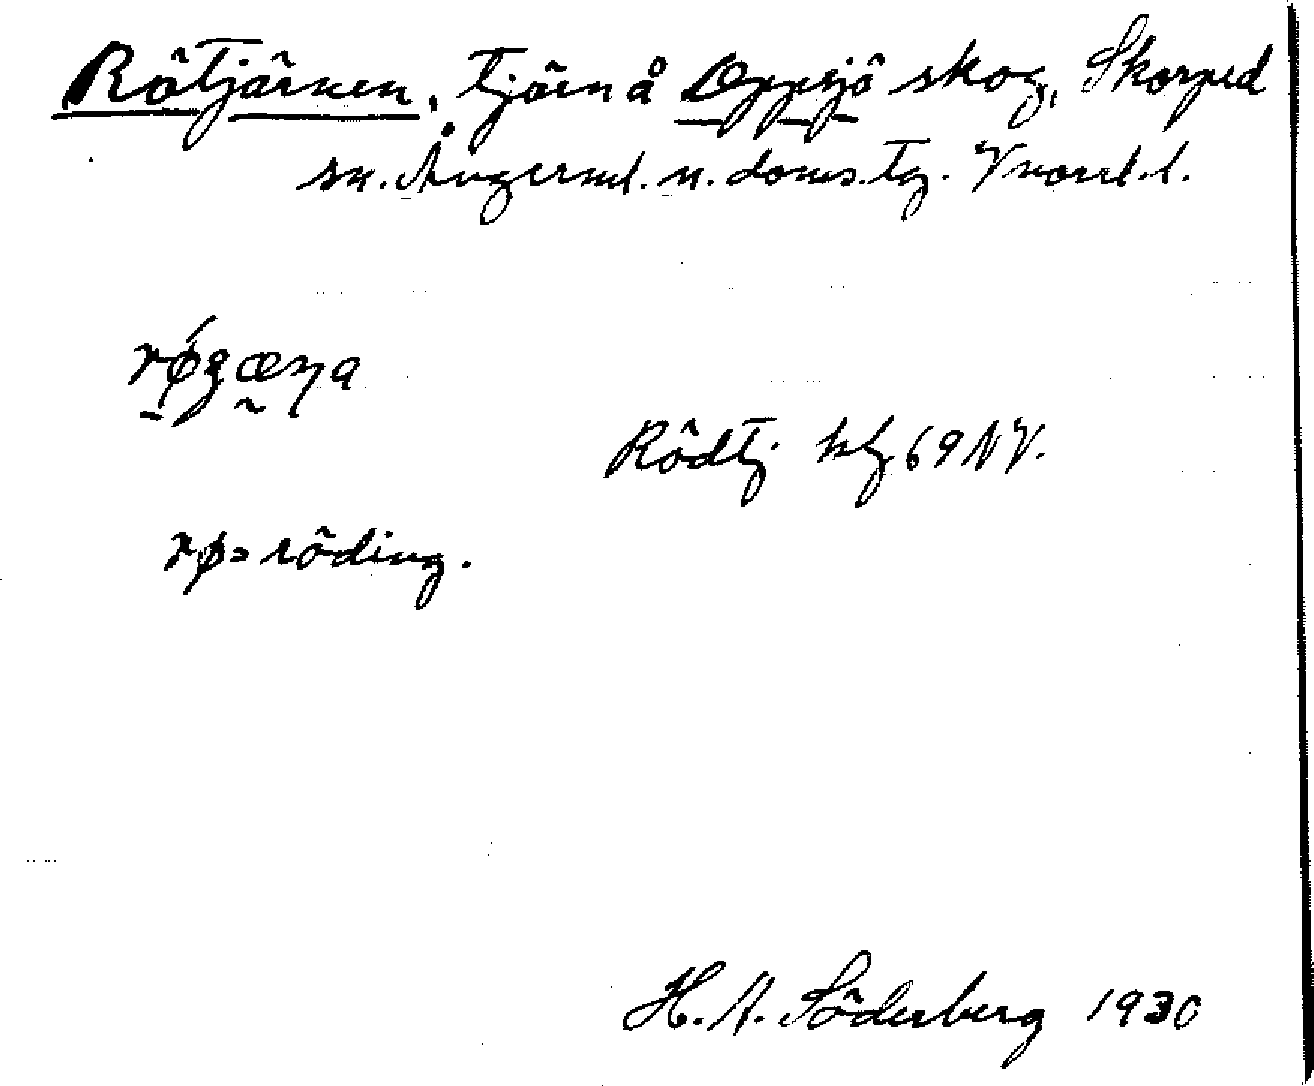 Rötjärnen, tjärn å Oppsjö skog, Skorped
sn. Ångerml. n. doms. tg. Vnorrl. l.
Rödtj. kbl. 69 NV.
rø = röding.
H. A. Söderberg 1930